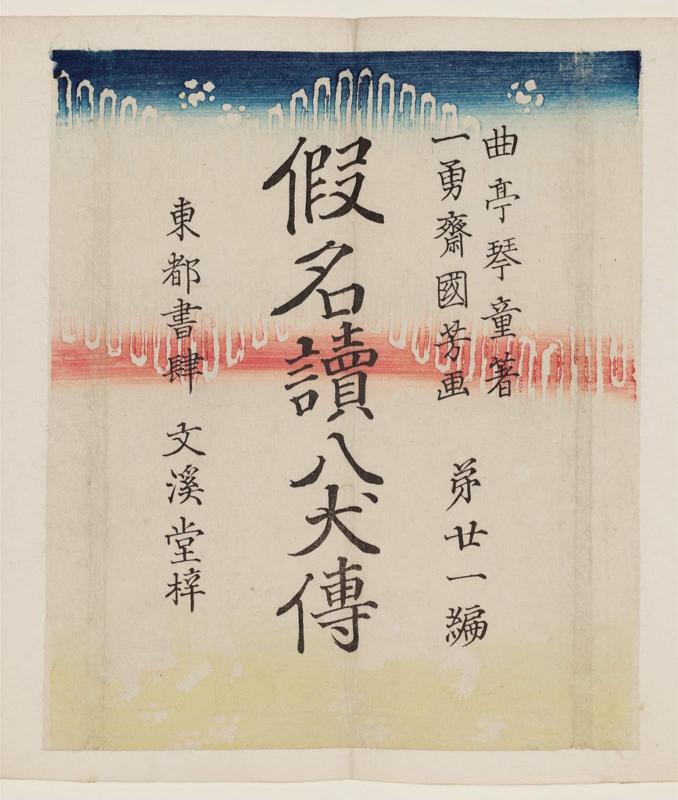 曲亭琴童著
一勇齋國芳画
第廿一編
假名讀八犬傳
東都書肆 文溪堂梓